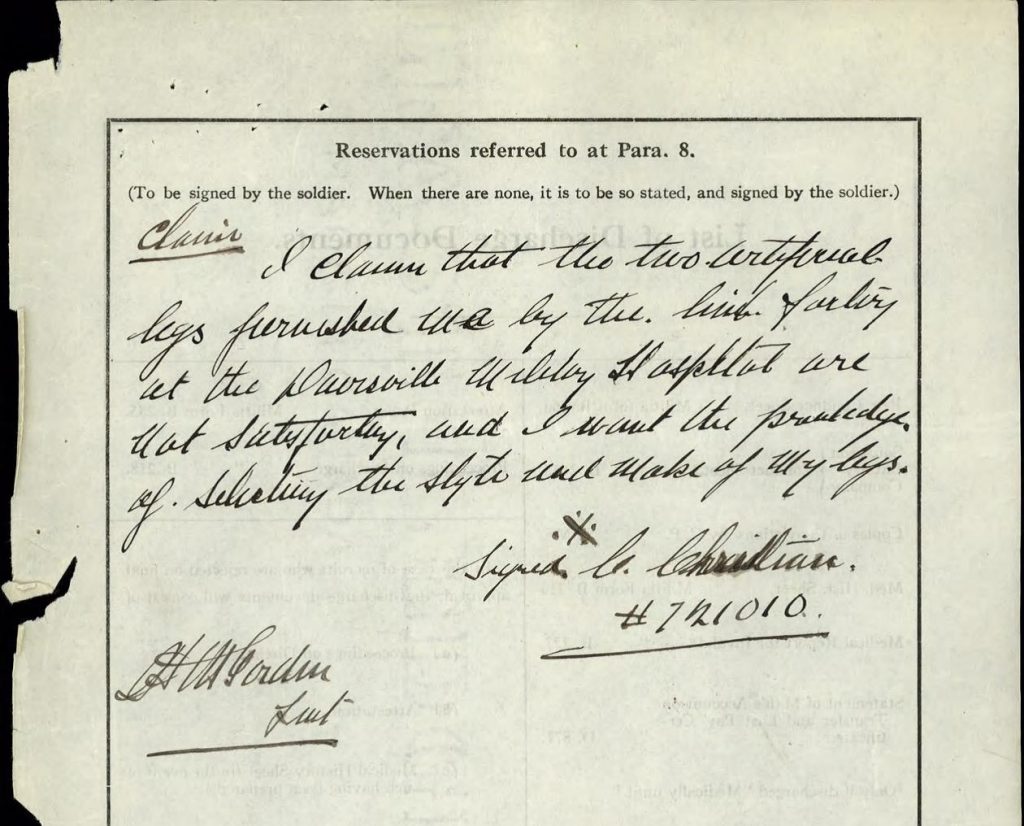 Reservations referred to at Para. 8.
(To be signed by the soldier. When there are none, it is to be so stated, and signed by the soldier.)
Claim
I claim that the two artificial
legs furnished me by the limb factory
at the Davisville Military Hospital are
not satisfactory, and I want the
of selecting the style and make of my legs.
Signed. C. Christian.
# 721010.
Gordon
Lieut
List of Discharge Documents.